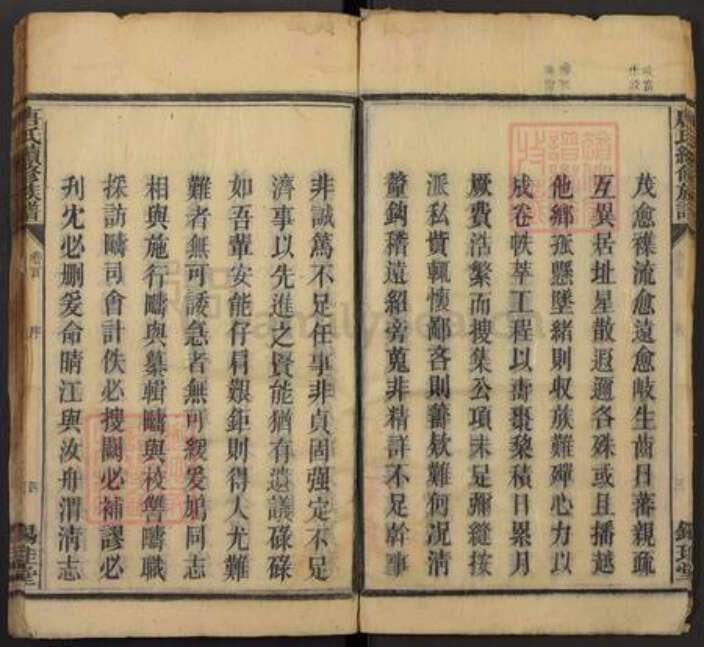 茂愈襍流愈遠愈岐生齒日蕃親疏
互異居址星散遐邇各殊或且播越
他鄉孤懸墜緒則收族難殫心力以
成卷帙萃工程以壽棗黎積日累月
厥費浩繁而搜集公項未足彌縫按
派私貲輒懷鄙吝則蕃欸難何况清
釐鈎稽遠紹旁蒐非精詳不足幹事
非誠篤不足任事非貞固强定不足
濟事以先進之賢能猶有遺議碌碌
如吾輩安能仔肩艱鉅則得人尤難
難者無可諉急者無可緩爰鳩同志
相與施行疇與摹輯疇與校讐疇職
採訪疇司會計佚必搜闕必補謬必
刋冘必删爰命晴江與汝舟渭清志
唐氏續修族譜
卷首
序
四
錫珪堂
唐氏續修族譜
三
錫珪堂